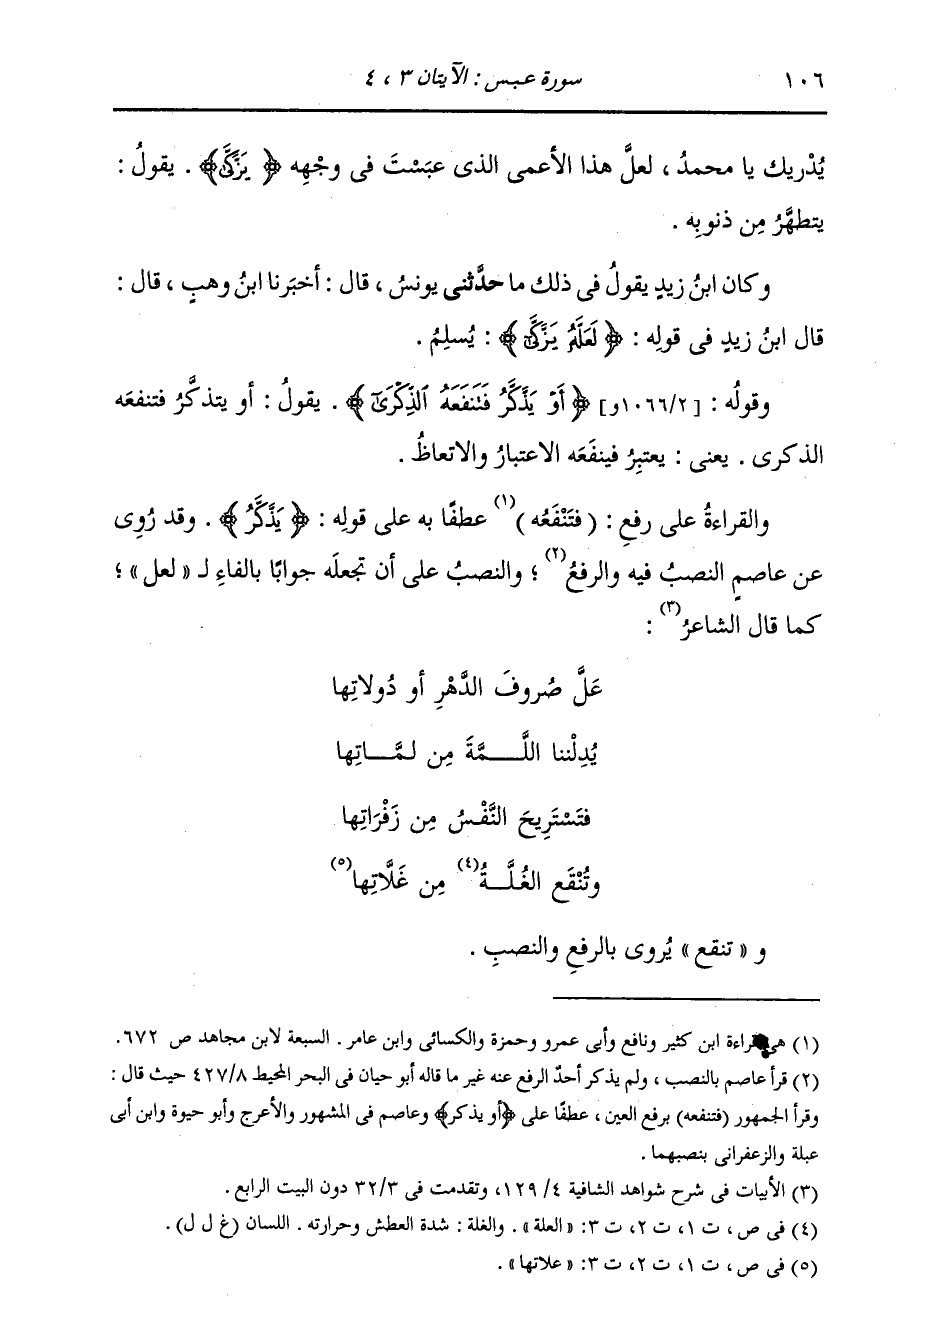 ١٠٦ سورة عبس : الآيتان ٣ ، ٤
يُدْريك يا محمدُ ، لعلَّ هذا الأعمى الذى عبَسْتَ فى وجْهِه ﴿ يَزَّكَّىٰ ﴾ . يقولُ :
يتطهَّرُ مِن ذنوبِه .
وكان ابنُ زيدٍ يقولُ فى ذلك ما حدَّثنى يونسُ ، قال : أخبَرنا ابنُ وهبٍ ، قال :
قال ابنُ زيدٍ فى قولِه : ﴿ لَعَلَّهُۥ يَزَّكَّىٰ ﴾ : يُسلِمُ .
وقولُه : [١٠٦٦/٢و] ﴿ أَوْ يَذَّكَّرُ فَتَنفَعَهُ ٱلذِّكْرَىٰٓ ﴾ . يقولُ : أو يتذكَّرُ فتنفعَه
الذكرى . يعنى : يعتبِرُ فينفَعَه الاعتبارُ والاتعاظُ .
والقراءةُ على رفعِ : ( فتَنْفَعُه )(١) عطفًا به على قولِه : ﴿ يَذَّكَّرُ ﴾ . وقد رُوِى
عن عاصمٍ النصبُ فيه والرفعُ(٢) ؛ والنصبُ على أن تجعلَه جوابًا بالفاءِ لـ « لعل » ؛
كما قال الشاعرُ(٣) :
عَلَّ صُروفَ الدَّهْرِ أو دُولاتِها
يُدِلْننا اللَّـــمَّةَ مِن لمَّـــاتِها
فتَسْتَرِيحَ النَّفْسُ مِن زَفْرَاتِها
وتُنْقَع الغُلَّـــةُ(٤) مِن غَلَّاتِها(٥)
و « تنقع » يُروى بالرفعِ والنصبِ .
(١) هى قراءة ابن كثير ونافع وأبى عمرو وحمزة والكسائى وابن عامر . السبعة لابن مجاهد ص ٦٧٢.
(٢) قرأ عاصم بالنصب ، ولم يذكر أحدٌ الرفع عنه غير ما قاله أبو حيان فى البحر المحيط ٤٢٧/٨ حيث قال :
وقرأ الجمهور (فتنفعه) برفع العين ، عطفًا على ﴿أو يذكر﴾ وعاصم فى المشهور والأعرج وأبو حيوة وابن أبى
عبلة والزعفرانى بنصبهما .
(٣) الأبيات فى شرح شواهد الشافية ٤/ ١٢٩، وتقدمت فى ٣٢/٣ دون البيت الرابع .
(٤) فى ص ، ت ١، ت ٢، ت ٣: « العلة » . والغلة : شدة العطش وحرارته . اللسان (غ ل ل) .
(٥) فى ص ، ت ١، ت ٢، ت ٣: « علاتها » .